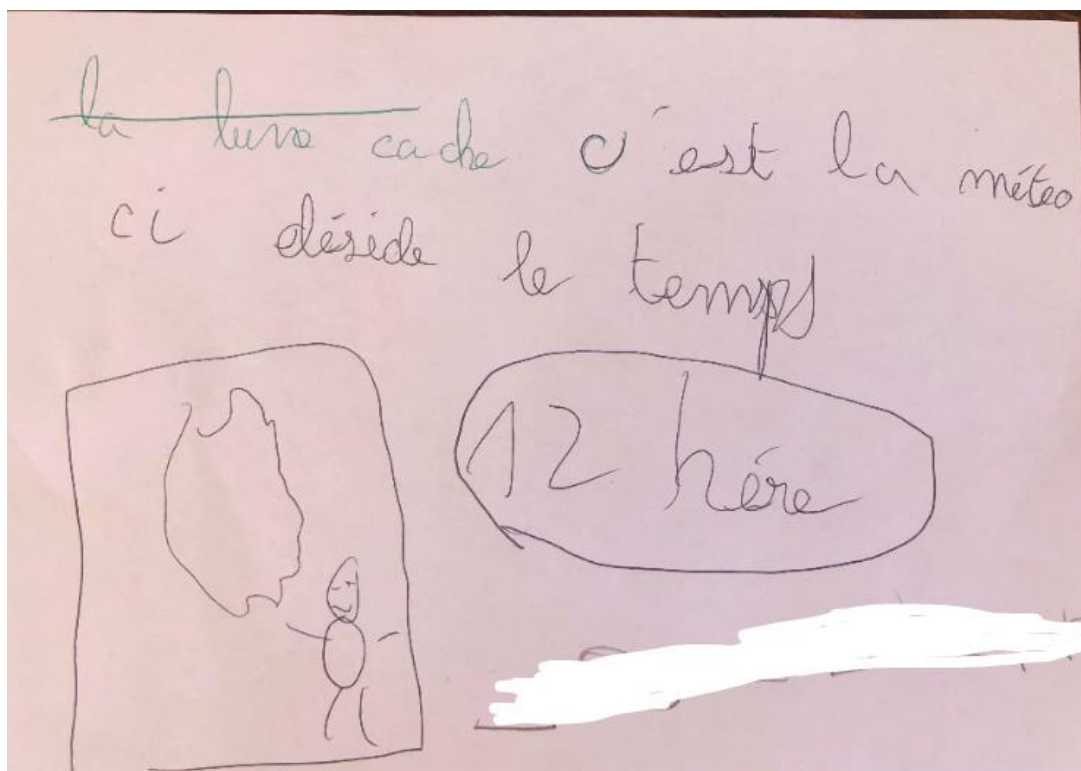 la lune cache c'est la météo
ci déside le temps
12 hére